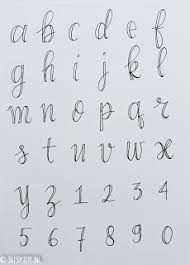 a b c d e f
g h i j k l
m n o p q r
s t u v w x
y z 1 2 3 4
5 6 7 8 9 0
© SUSY.DIY.NL